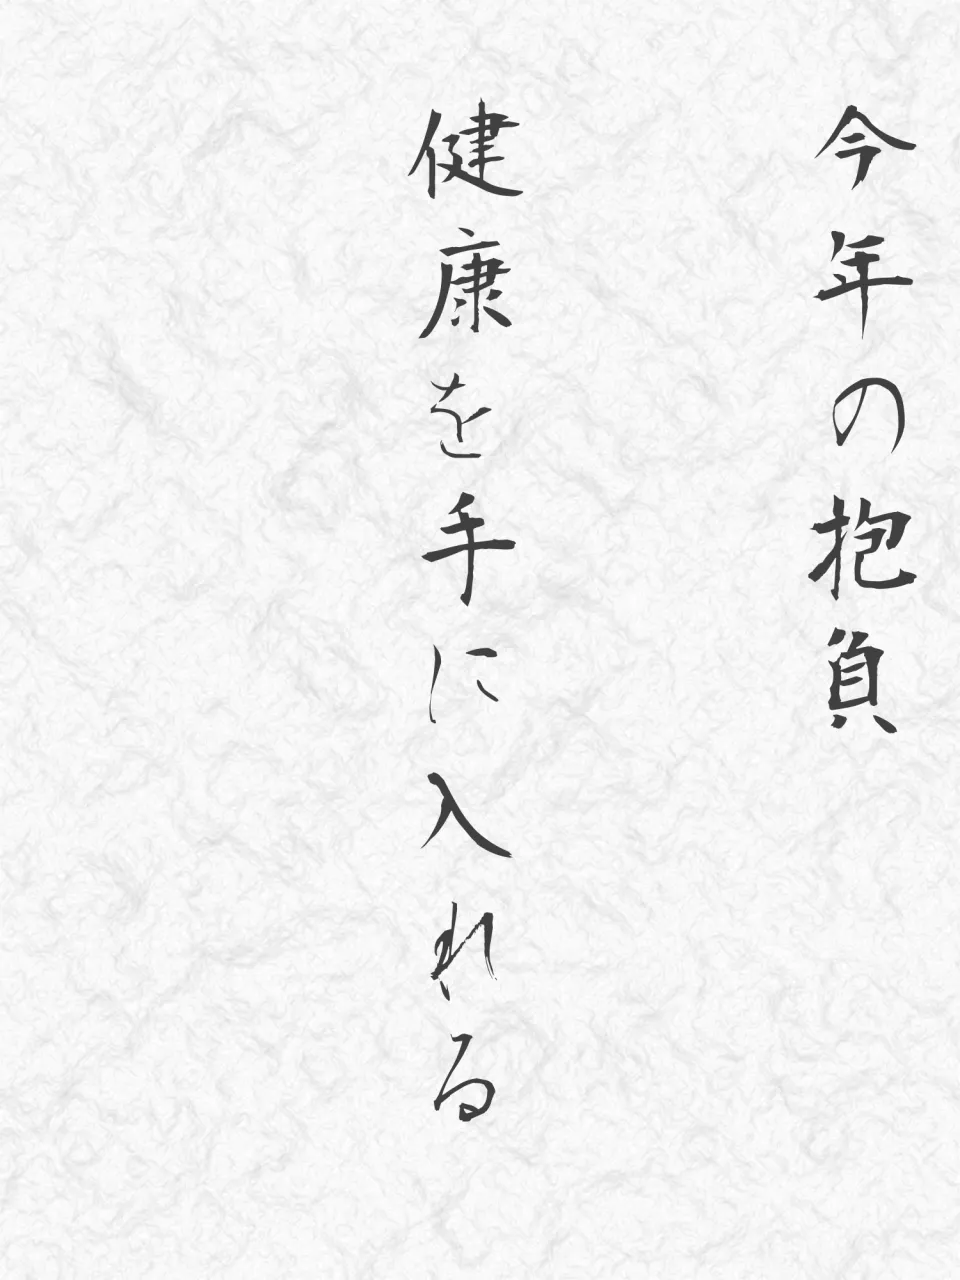 今年の抱負
健康を手に入れる